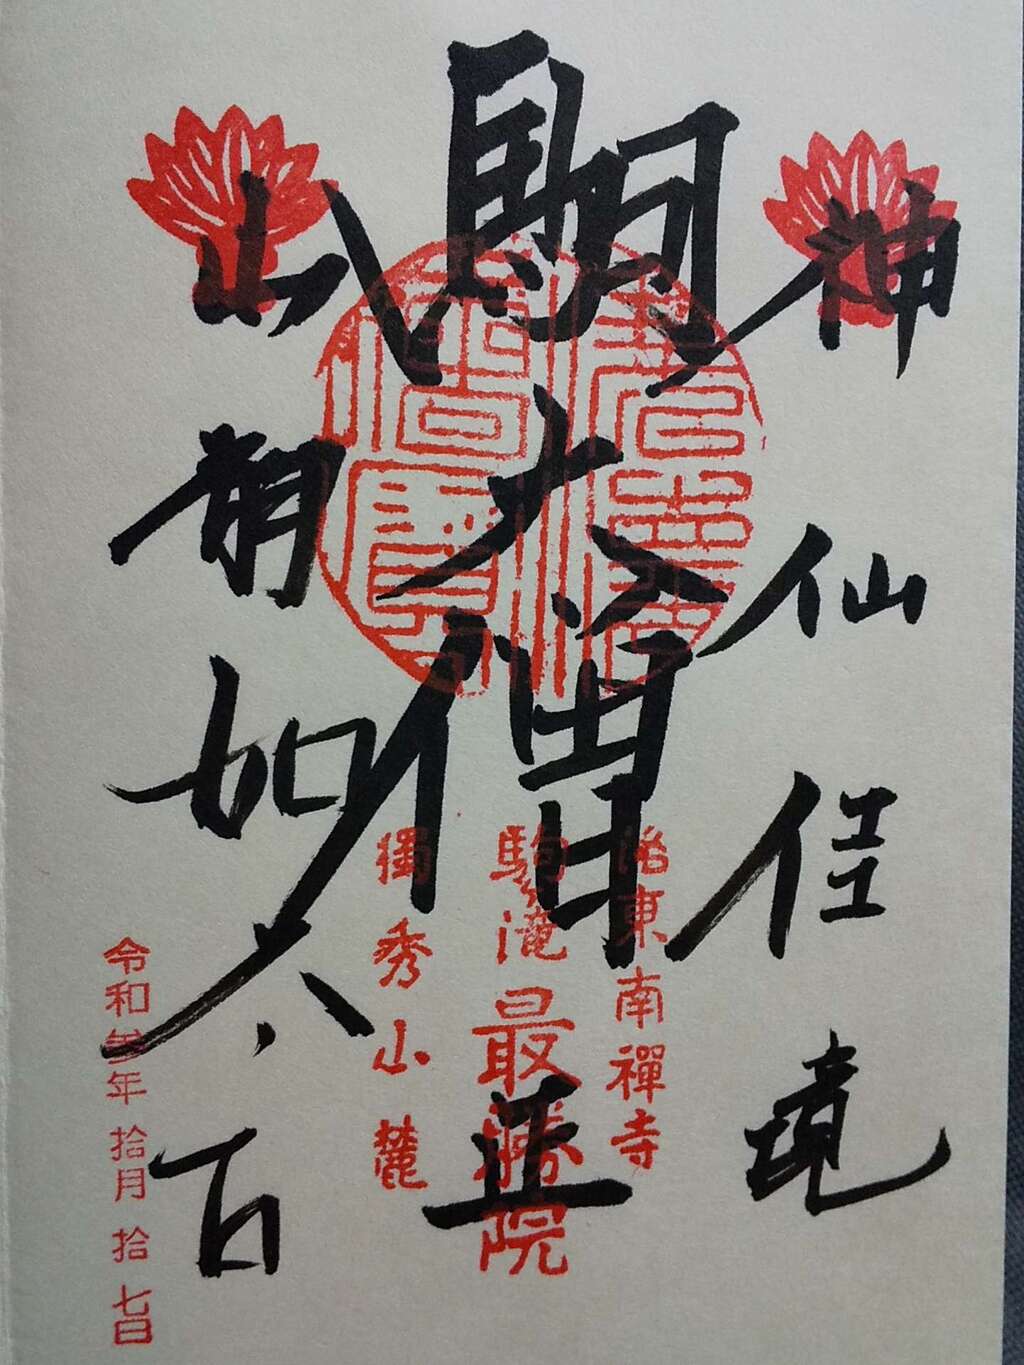 神仙佳境
駒大僧正
如太古
洛東南禪寺
駒ヶ滝最勝院
獨秀山麓
令和参年拾月拾七日